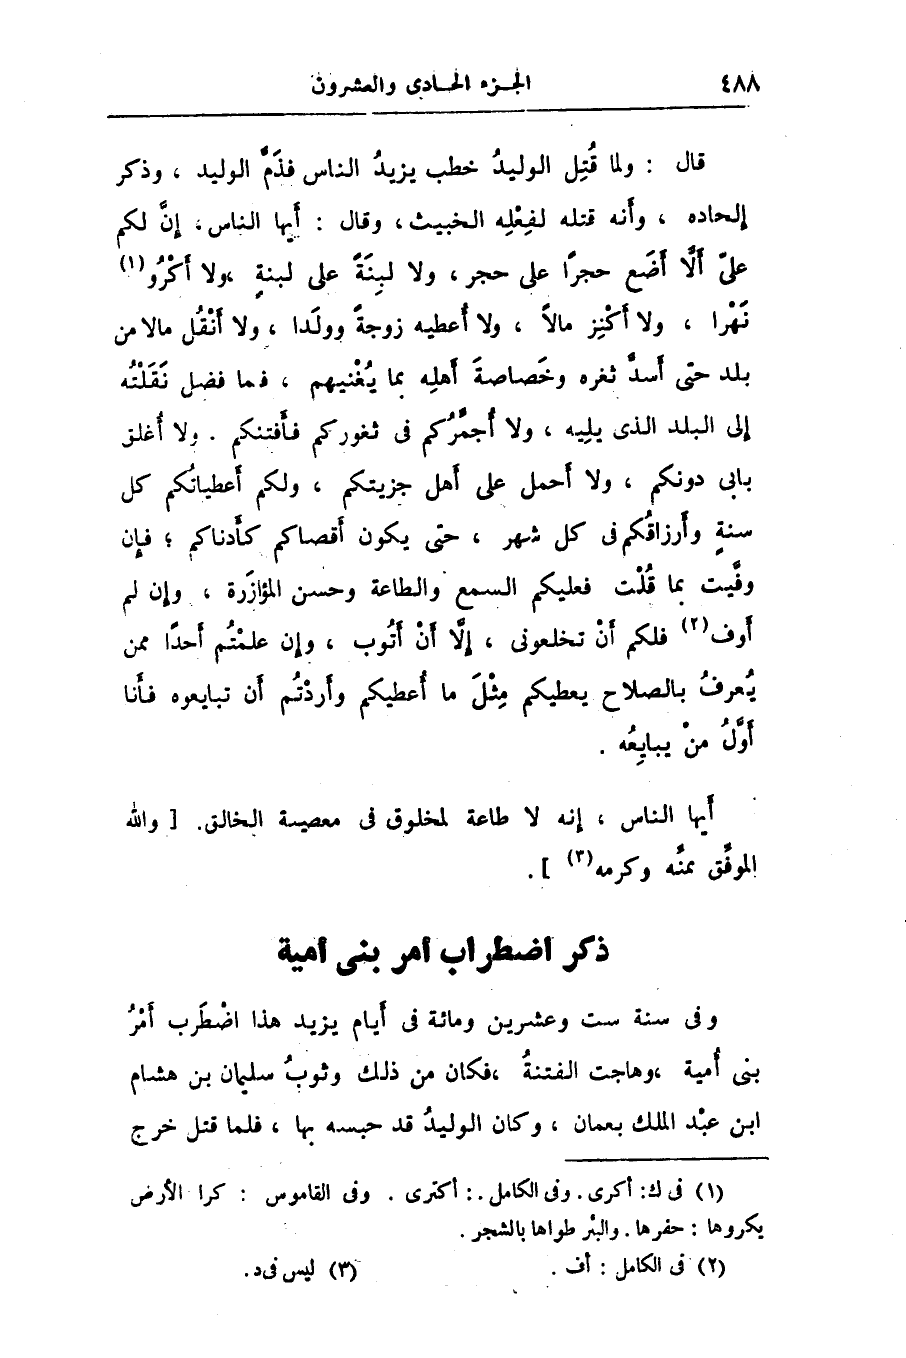 ٤٨٨
الجزء الحادى والعشرون
قال : ولما قُتِل الوليدُ خطب يزيدُ الناس فذَمَّ الوليد ، وذكر
إلحاده ، وأنه قتله لفِعْلِه الخبيث ، وقال : أيها الناس ، إنَّ لكم
علىّ ألَّا أضَع حجرًا على حجر ، ولا لبِنَةً على لبنةٍ ، ولا أكْرُو (١)
نَهْرا ، ولا أكْنِز مالاً ، ولا أعطيه زوجةً وولَدا ، ولا أنْقُل مالا من
بلد حتى أسدَّ ثغره وخَصاصةَ أهلِه بما يُغْنيهم ، فما فضل نَقَلْتُه
إلى البلد الذى يلِيه ، ولا أجمِّرُكم فى ثغوركم فأفتنكم . ولا أغلق
بابى دونكم ، ولا أحمل على أهل جزيتكم ، ولكم أعطياتُكم كل
سنةٍ وأرزاقُكم فى كل شهر ، حتى يكون أقصاكم كأدناكم ؛ فإن
وفَّيت بما قُلْت فعليكم السمع والطاعة وحسن المؤازَرة ، وإن لم
أوف (٢) فلكم أنْ تخلعونى ، إلَّا أنْ أتُوب ، وإن علمْتُم أحدًا ممن
يُعرفُ بالصلاح يعطيكم مِثْلَ ما أعطيكم وأردْتُم أن تبايعوه فأنا
أوَّلُ منْ يبايِعُه .
أيها الناس ، إنه لا طاعة لمخلوق فى معصية الخالق . [ والله
الموفِّق بمنِّه وكرمه (٣) ] .
ذكر اضطراب أمر بنى أمية
وفى سنة ست وعشرين ومائة فى أيام يزيد هذا اضْطَرب أمْرُ
بنى أمية ، وهاجت الفتنةُ ، فكان من ذلك وثوبُ سليمان بن هشام
ابن عبْد الملك بعمان ، وكان الوليدُ قد حبسه بها ، فلما قتل خرج
(١) فى ك: أكرى . وفى الكامل . : أكترى . وفى القاموس : كرا الأرض
يكروها : حفرها . والبئر طواها بالشجر .
(٢) فى الكامل : أف .
(٣) ليس فى د .